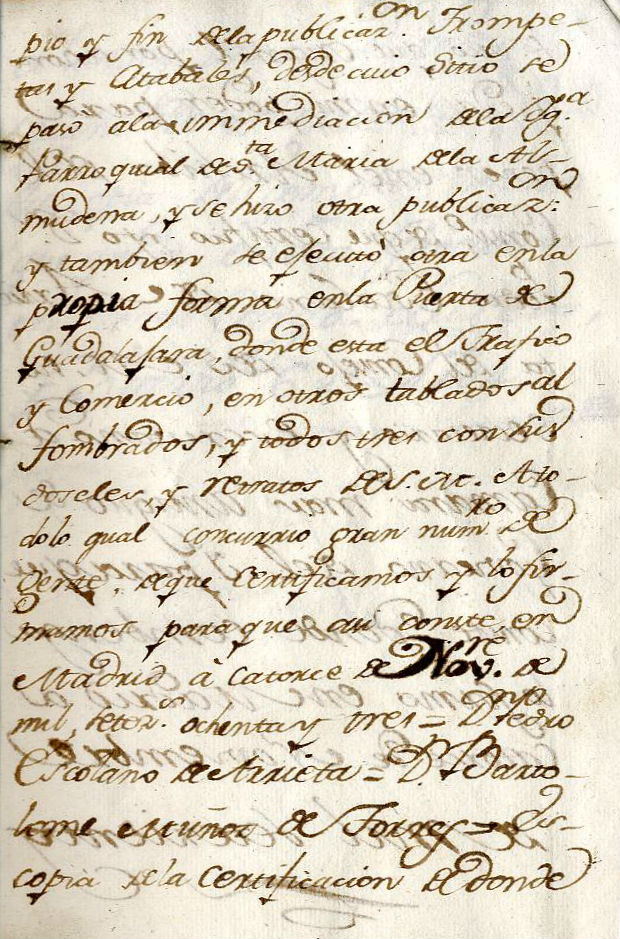 pio y fin de la publicaz.on Trompe-
tas y Atabales, desde cuio sitio se
pasó a la immediacion de la Yg.a
Parroquial de S.ta Maria de la Al-
mudena, y se hizo otra publicaz.on
y tambien se efecutó otra en la
propia forma en la Puerta de
Guadalaxara, donde esta el Trafico
y Comercio, en otros tablados al
fombrados, y todos tres con sus
doseles, y retratos de S. M. A to-
do lo qual concurrio gran num.ro de
gente, de que Certificamos y lo fir-
mamos para que asi conste, en
Madrid á Catorce de Nov.re de
mil, setez.s ochenta y tres = D.n Pedro
Escolano de Arrieta = D.n Barto-
lome Muñoz de Torres = Es
copia de la Certificacion de donde